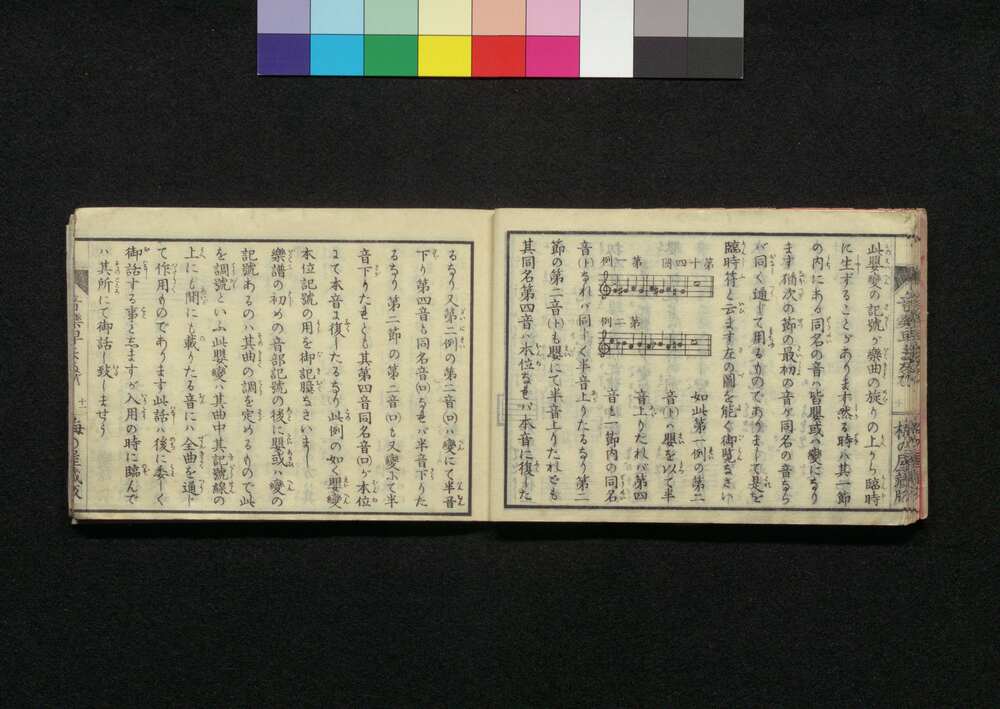 此嬰變の記號ガ樂曲の旋りの上から臨時
に生ずることがあります然る時ハ其一節
の内にある同名の音ハ皆嬰或ハ變になり
ます猶次の節の最初の音ガ同名の音なら
バ同く通して用るものでありまして是を
臨時符と云ます左の圖を能く御覧なさい
第十四圖
第一例
第二例
如此第一例の第二
音(ト)ハ嬰を以て半
音上りたれバ第四
音も一節内の同名
音(ト)なれバ同しく半音上りたるなり第二
節の第二音(ト)も嬰にて半音上りたれども
其同名第四音ハ本位なれバ本音に復した
るなり又第二例の第二音(ロ)ハ變にて半音
下り第四音も同名音(ロ)なれバ半音下りた
るなり第二節の第二音(ロ)も又變ニて半
音下りたれども其第四音同名音(ロ)ガ本位
にて本音ま復したるなり此例の如く嬰變
本位記號の用を御記臆なさいまし
樂譜の初めの音部記號の後に嬰或ハ變の
記號あるのハ其曲の調を定めるもので此
を調號といふ此嬰變ハ其曲中其記號線の
上にも間にも載りたる音にハ全曲を通し
て作用ものであります此話ハ後に委しく
御話する事と志ますガ入用の時に臨んで
ハ其所にて御話し致しませう
音樂早
十一